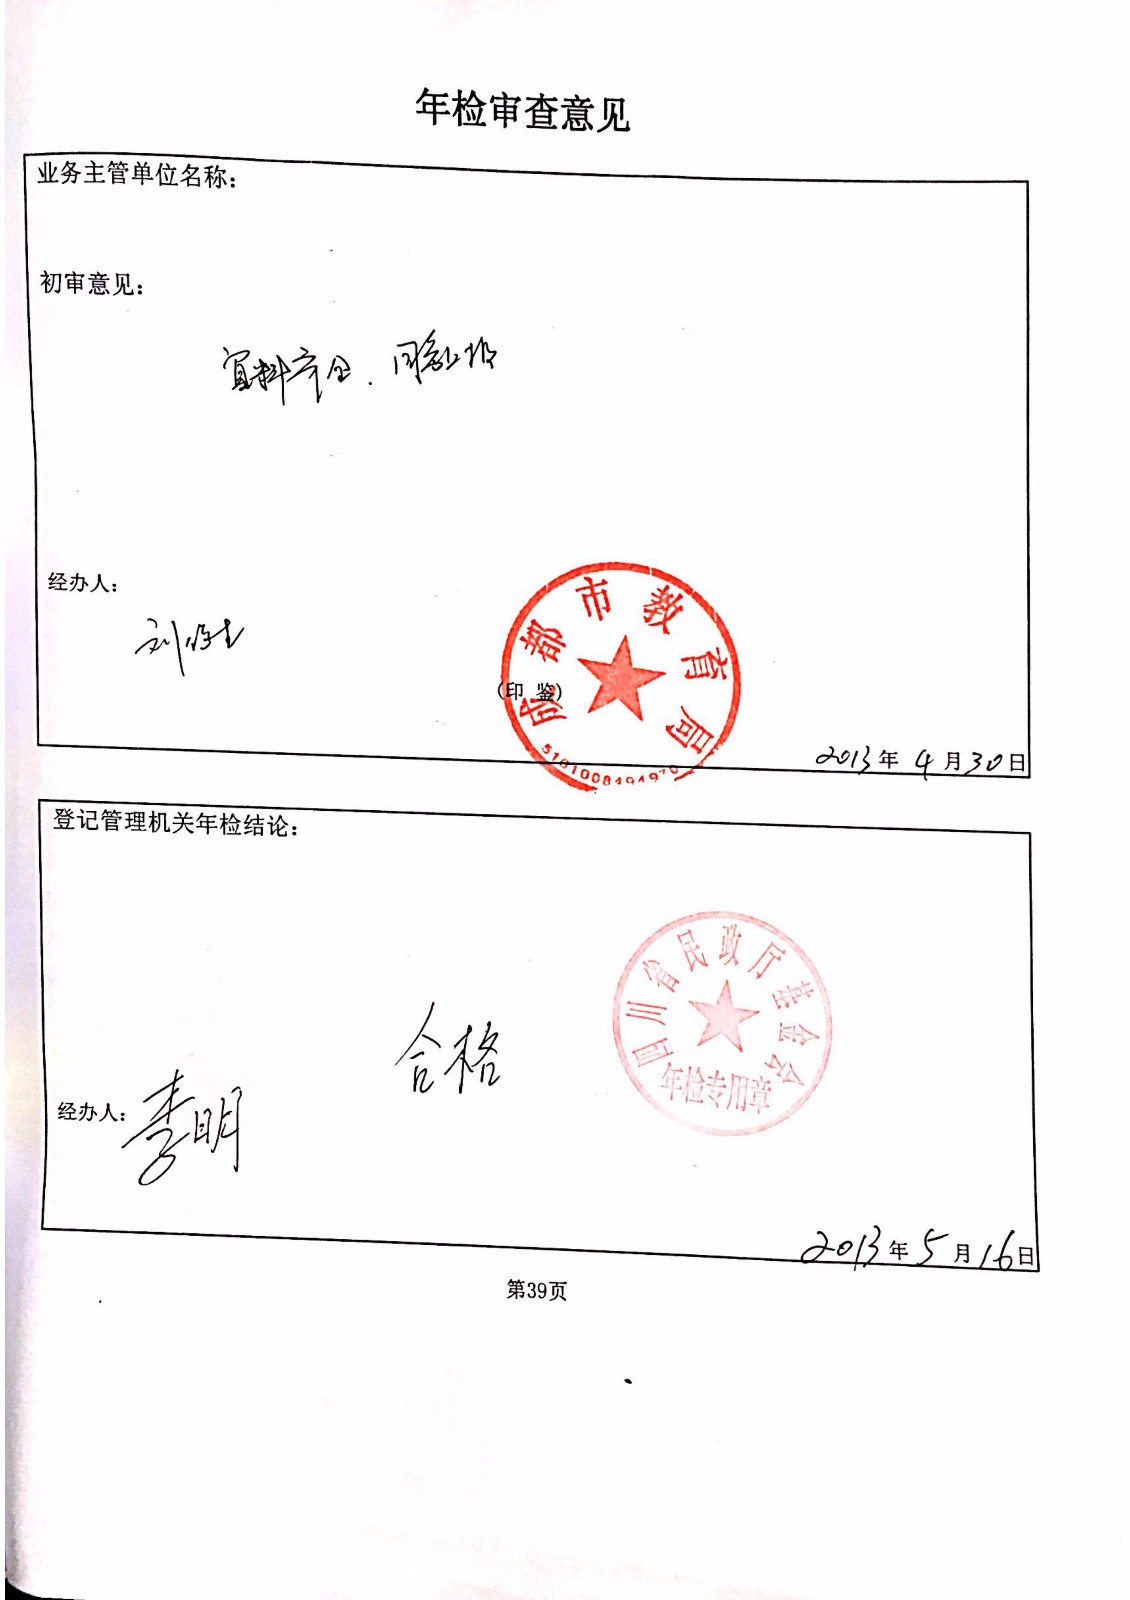 年检审查意见
业务主管单位名称：
初审意见：
资料齐全．同意上报
经办人：
刘
成都市教育局
（印 鉴）
2013年4月30日
登记管理机关年检结论：
四川省民政厅基金会
年检专用章
合格
经办人：李明
2013年5月16日
第39页